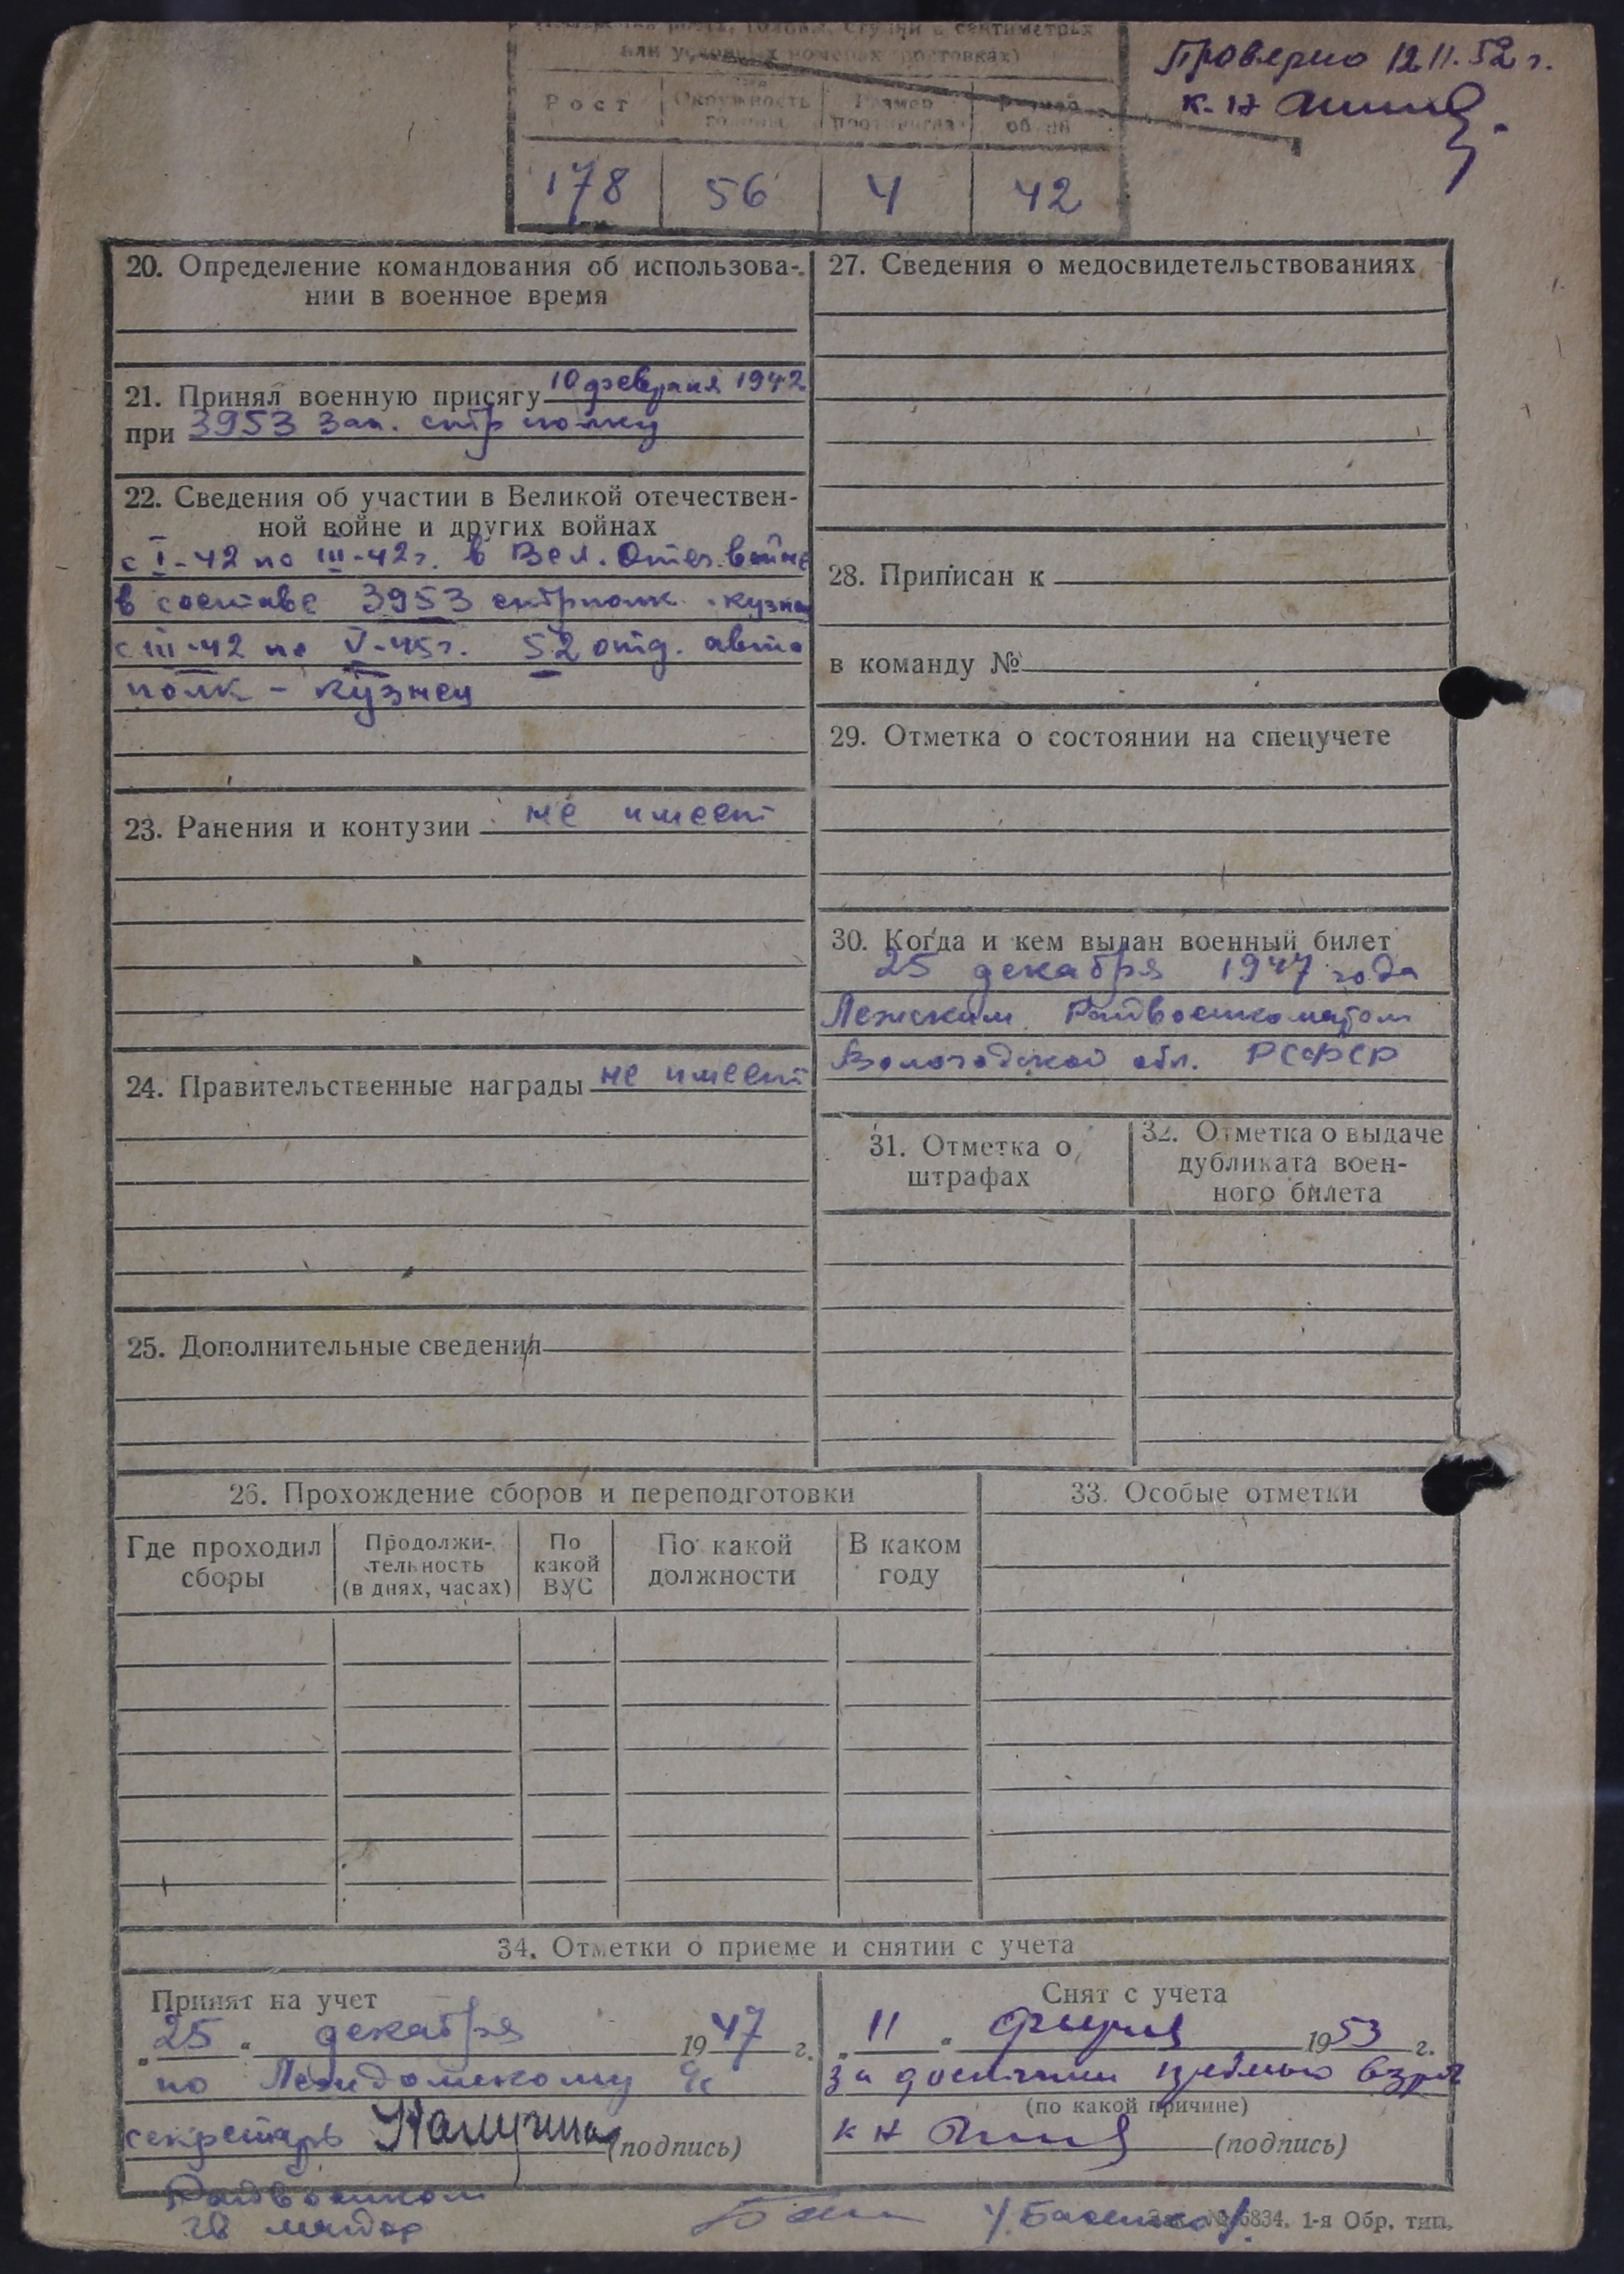 роста, головы, ступни в сантиметрах
или условных номерах ростовках)
Проверено 12 11. 52 г.
к. н
Рост Окружность головы Размер противогаза Размер обуви
178 56 4 42
20. Определение командования об использова-
нии в военное время
21. Принял военную присягу 10 февраля 1942
при 3953 Зап. стр полку
22. Сведения об участии в Великой отечествен-
ной войне и других войнах
с I-42 по III-42 г. в Вел. Отеч. войне
в составе 3953 стрполк - кузнец
с III-42 по V-45 г. 52 отд. авто
полк - кузнец
23. Ранения и контузии не имеет
24. Правительственные награды не имеет
25. Дополнительные сведения
27. Сведения о медосвидетельствованиях
28. Приписан к
в команду №
29. Отметка о состоянии на спецучете
30. Когда и кем выдан военный билет
25 декабря 1947 года
Лежским Райвоенкоматом
Вологодской обл. РСФСР
31. Отметка о
штрафах
32. Отметка о выдаче
дубликата воен-
ного билета
26. Прохождение сборов и переподготовки
Где проходил
сборы
Продолжи-
тельность
(в днях, часах)
По
какой
ВУС
По какой
должности
В каком
году
33. Особые отметки
34. Отметки о приеме и снятии с учета
Принят на учет
„25“ декабря 1947 г.
по
секретарь (подпись)
Райвоенком
майор
Снят с учета
„11“ 1953 г.
за
(по какой причине)
к н (подпись)
/Басенко/
№ 6834. 1-я Обр. тип.